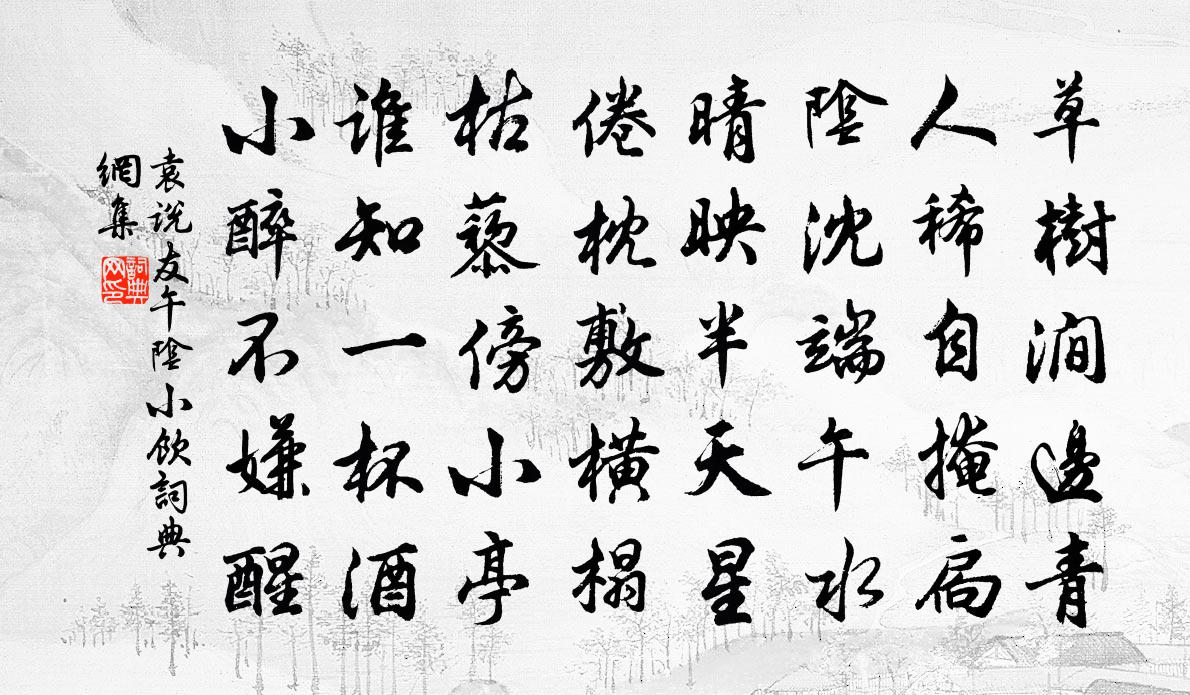 草樹澗邊青
人稀自掩扃
陰沈端午水
晴映半天星
倦枕敷橫榻
枯藜傍小亭
誰知一杯酒
小醉不嫌醒
袁說友午陰小飲詞典
網集
詞典网印